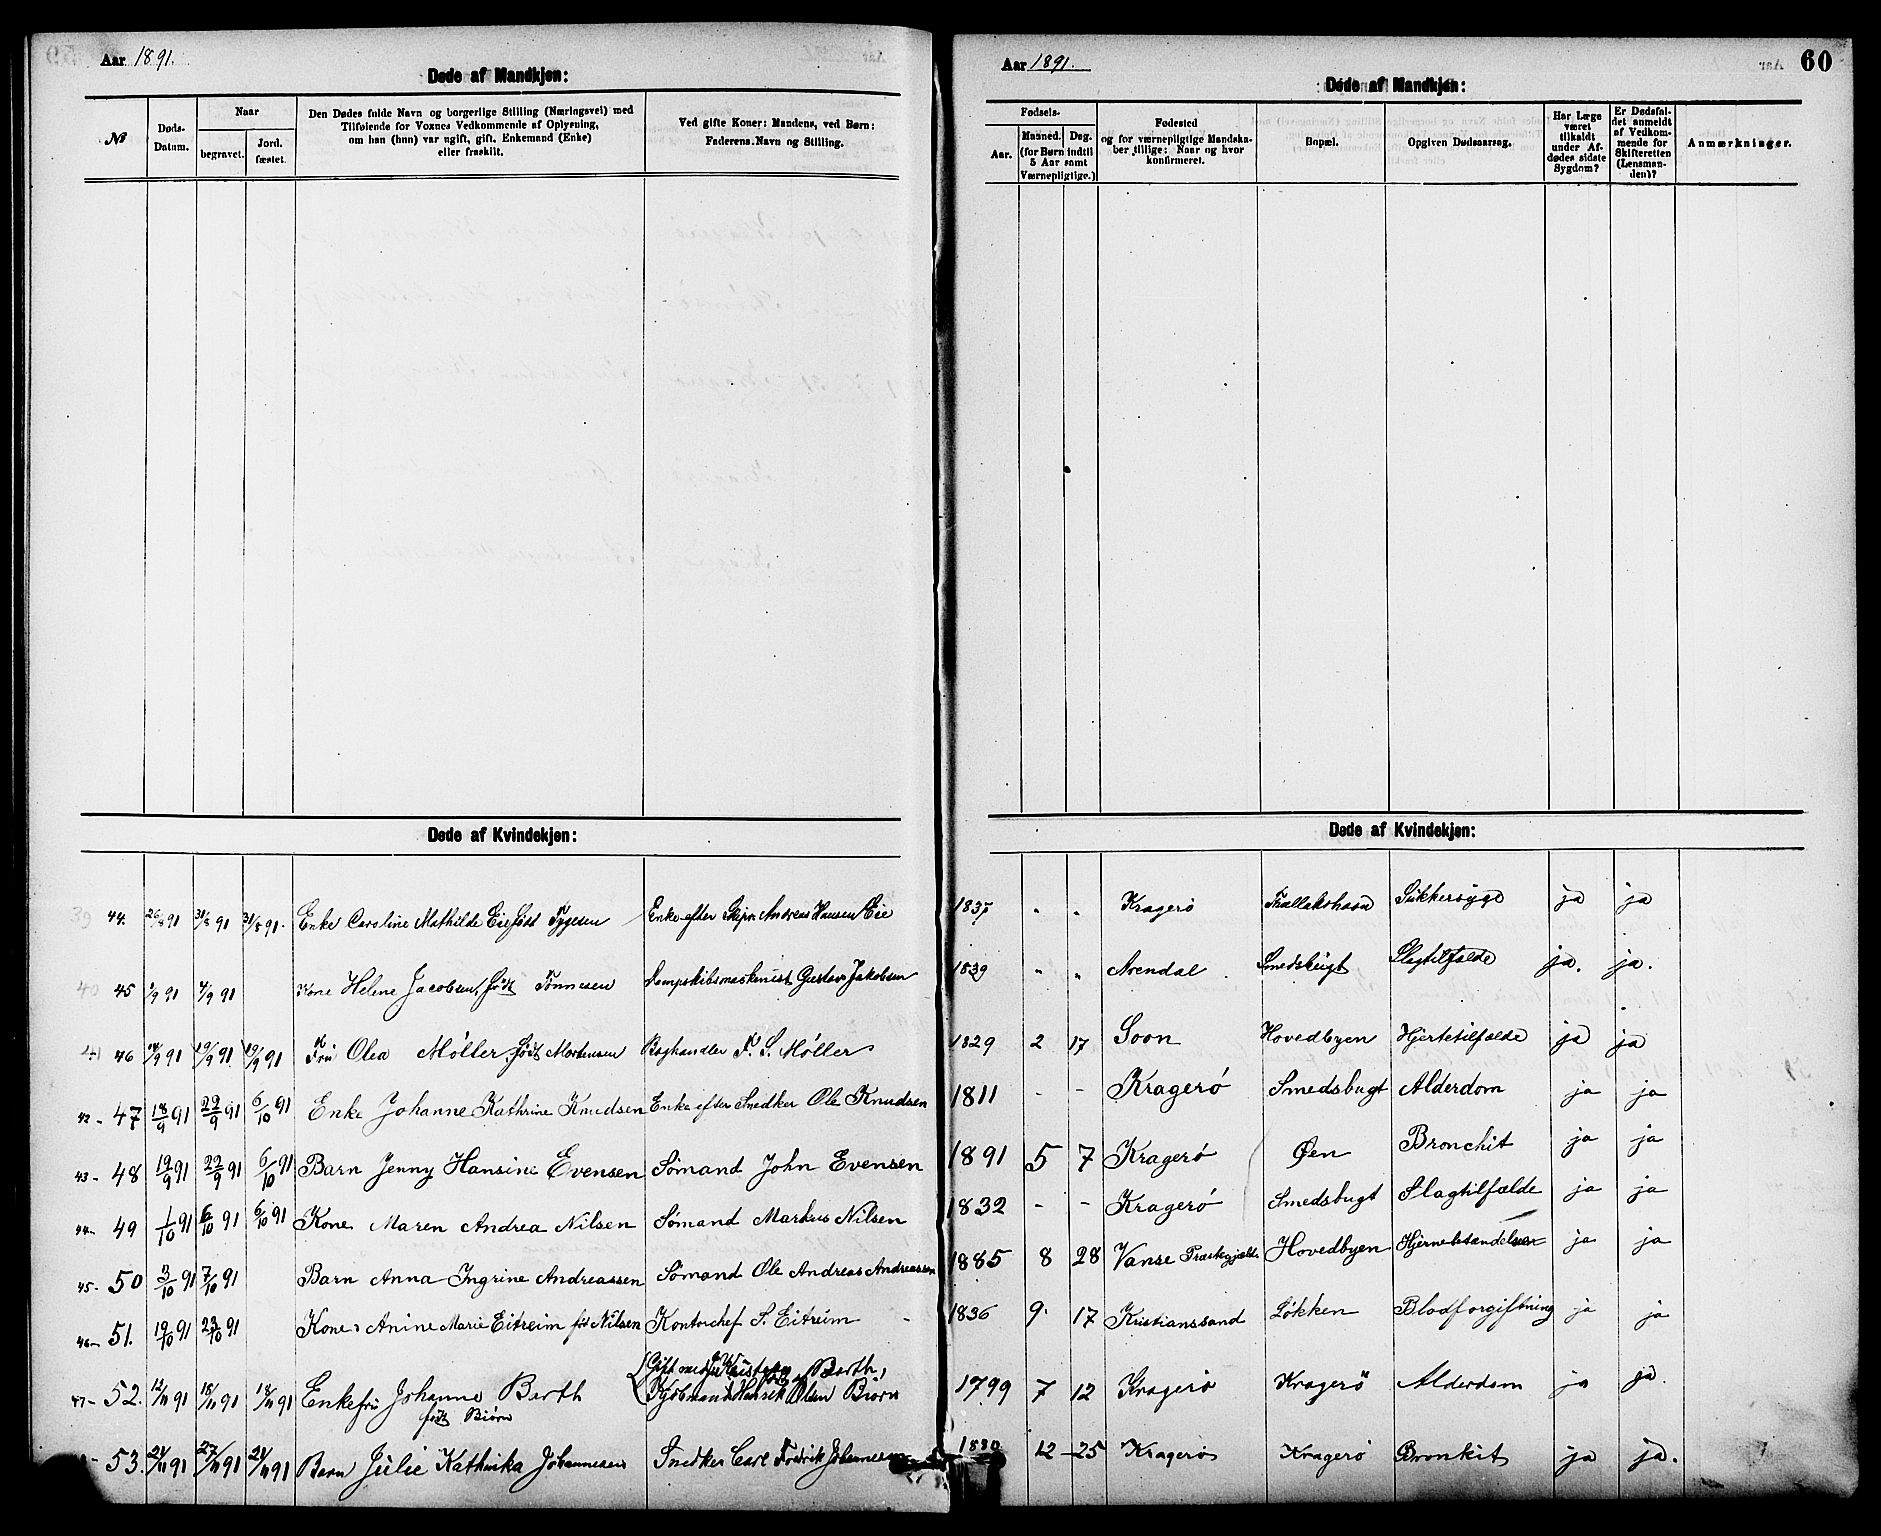 Aar 1891.
Døde af Mandkjøn:
№
Døds-Datum.
Naar
begravet.
Jord-fæstet.
Den Dødes fulde Navn og borgerlige Stilling (Næringsvei) med
Tilføiende for Voxnes Vedkommende af Oplysning,
om han (hun) var ugift, gift, Enkemand (Enke)
eller fraskilt.
Ved gifte Koner: Mandens, ved Børn:
Faderens Navn og Stilling.
Døde af Kvindekjøn:
39 44. 26/8 91 31/8 91 31/8 91. Enke Caroline Mathilde Eie født Tygesen Enke efter Skipr. Andreas Hansen Eie
40 45 2/9 91 7/9 91 Kone Helene Jacobsen, født Tønnesen Dampskibsmaskinist Gustav Jakobsen
41 46 14/9 91 19/9 91 19/9 91 Fru Olea Møller, født Mortensen Boghandler F. S. Møller
42- 47 18/9 91 22/9 91 6/10 91 Enke Johanne Kathrine Knudsen Enke efter Snedker Ole Knudsen
43- 48 19/9 91 22/9 91 6/10 91 Barn Jenny Hansine Evensen Sømand John Evensen
44- 49 1/10 91 6/10 91 6/10 91 Kone Maren Andrea Nilsen Sømand Markus Nilsen
45- 50 3/10 91 7/10 91 Barn Anna Ingrine Andreassen Sømand Ole Andreas Andreassen
46- 51. 19/10 91 23/10 91 Kone Anine Marie Eitreim fød Nilsen Kontorchef S. Eitreim
47- 52. 12/11 91 18/11 91 18/11 91 Enkefru Johanne Barth (Gift med Barth)
født Biørn Kjøbmand Henrik Olsen Biørn
53. 21/11 91 27/11 91 Barn Julie Kathinka Johannesen Snedker Carl Fredrik Johannesen
Aar 1891.
60
Døde af Mandkjøn:
Fødsels-
Aar.
Maaned. Dag.
(for Børn indtil
5 Aar samt
Værnepligtige.)
Fødested
og for værnepligtige Mandska-
ber tillige: Naar og hvor
konfirmeret.
Bopæl.
Opgiven Dødsaarsag.
Har Læge
været
tilkaldt
under Af-
dødes sidste
Sygdom?
Er Dødsfal-
det anmeldt
af Vedkom-
mende for
Skifteretten
(Lensman-
den)?
Anmærkninger.
Døde af Kvindekjøn:
1837 " " Kragerø Sukkersyge ja ja
1839 " " Arendal Smedsbugt Slagtilfælde ja. ja.
1829 2 17 Soon Hovedbyen Hjertetilfælde ja ja
1811 - - Kragerø Smedsbugt Alderdom ja ja
1891 5 7 Kragerø Øen Bronchit ja ja
1832 - - Kragerø Smedsbugt Slagtilfælde ja ja
1885 8 28 Vanse Præstegjæld Hovedbyen Hjernebetændelse ja ja
1836 9 17 Kristianssand Løkken Blodforgiftning ja ja
1799 7 12 Kragerø Kragerø Alderdom ja ja.
1880 12 -25 Kragerø Kragerø Bronkit ja ja.